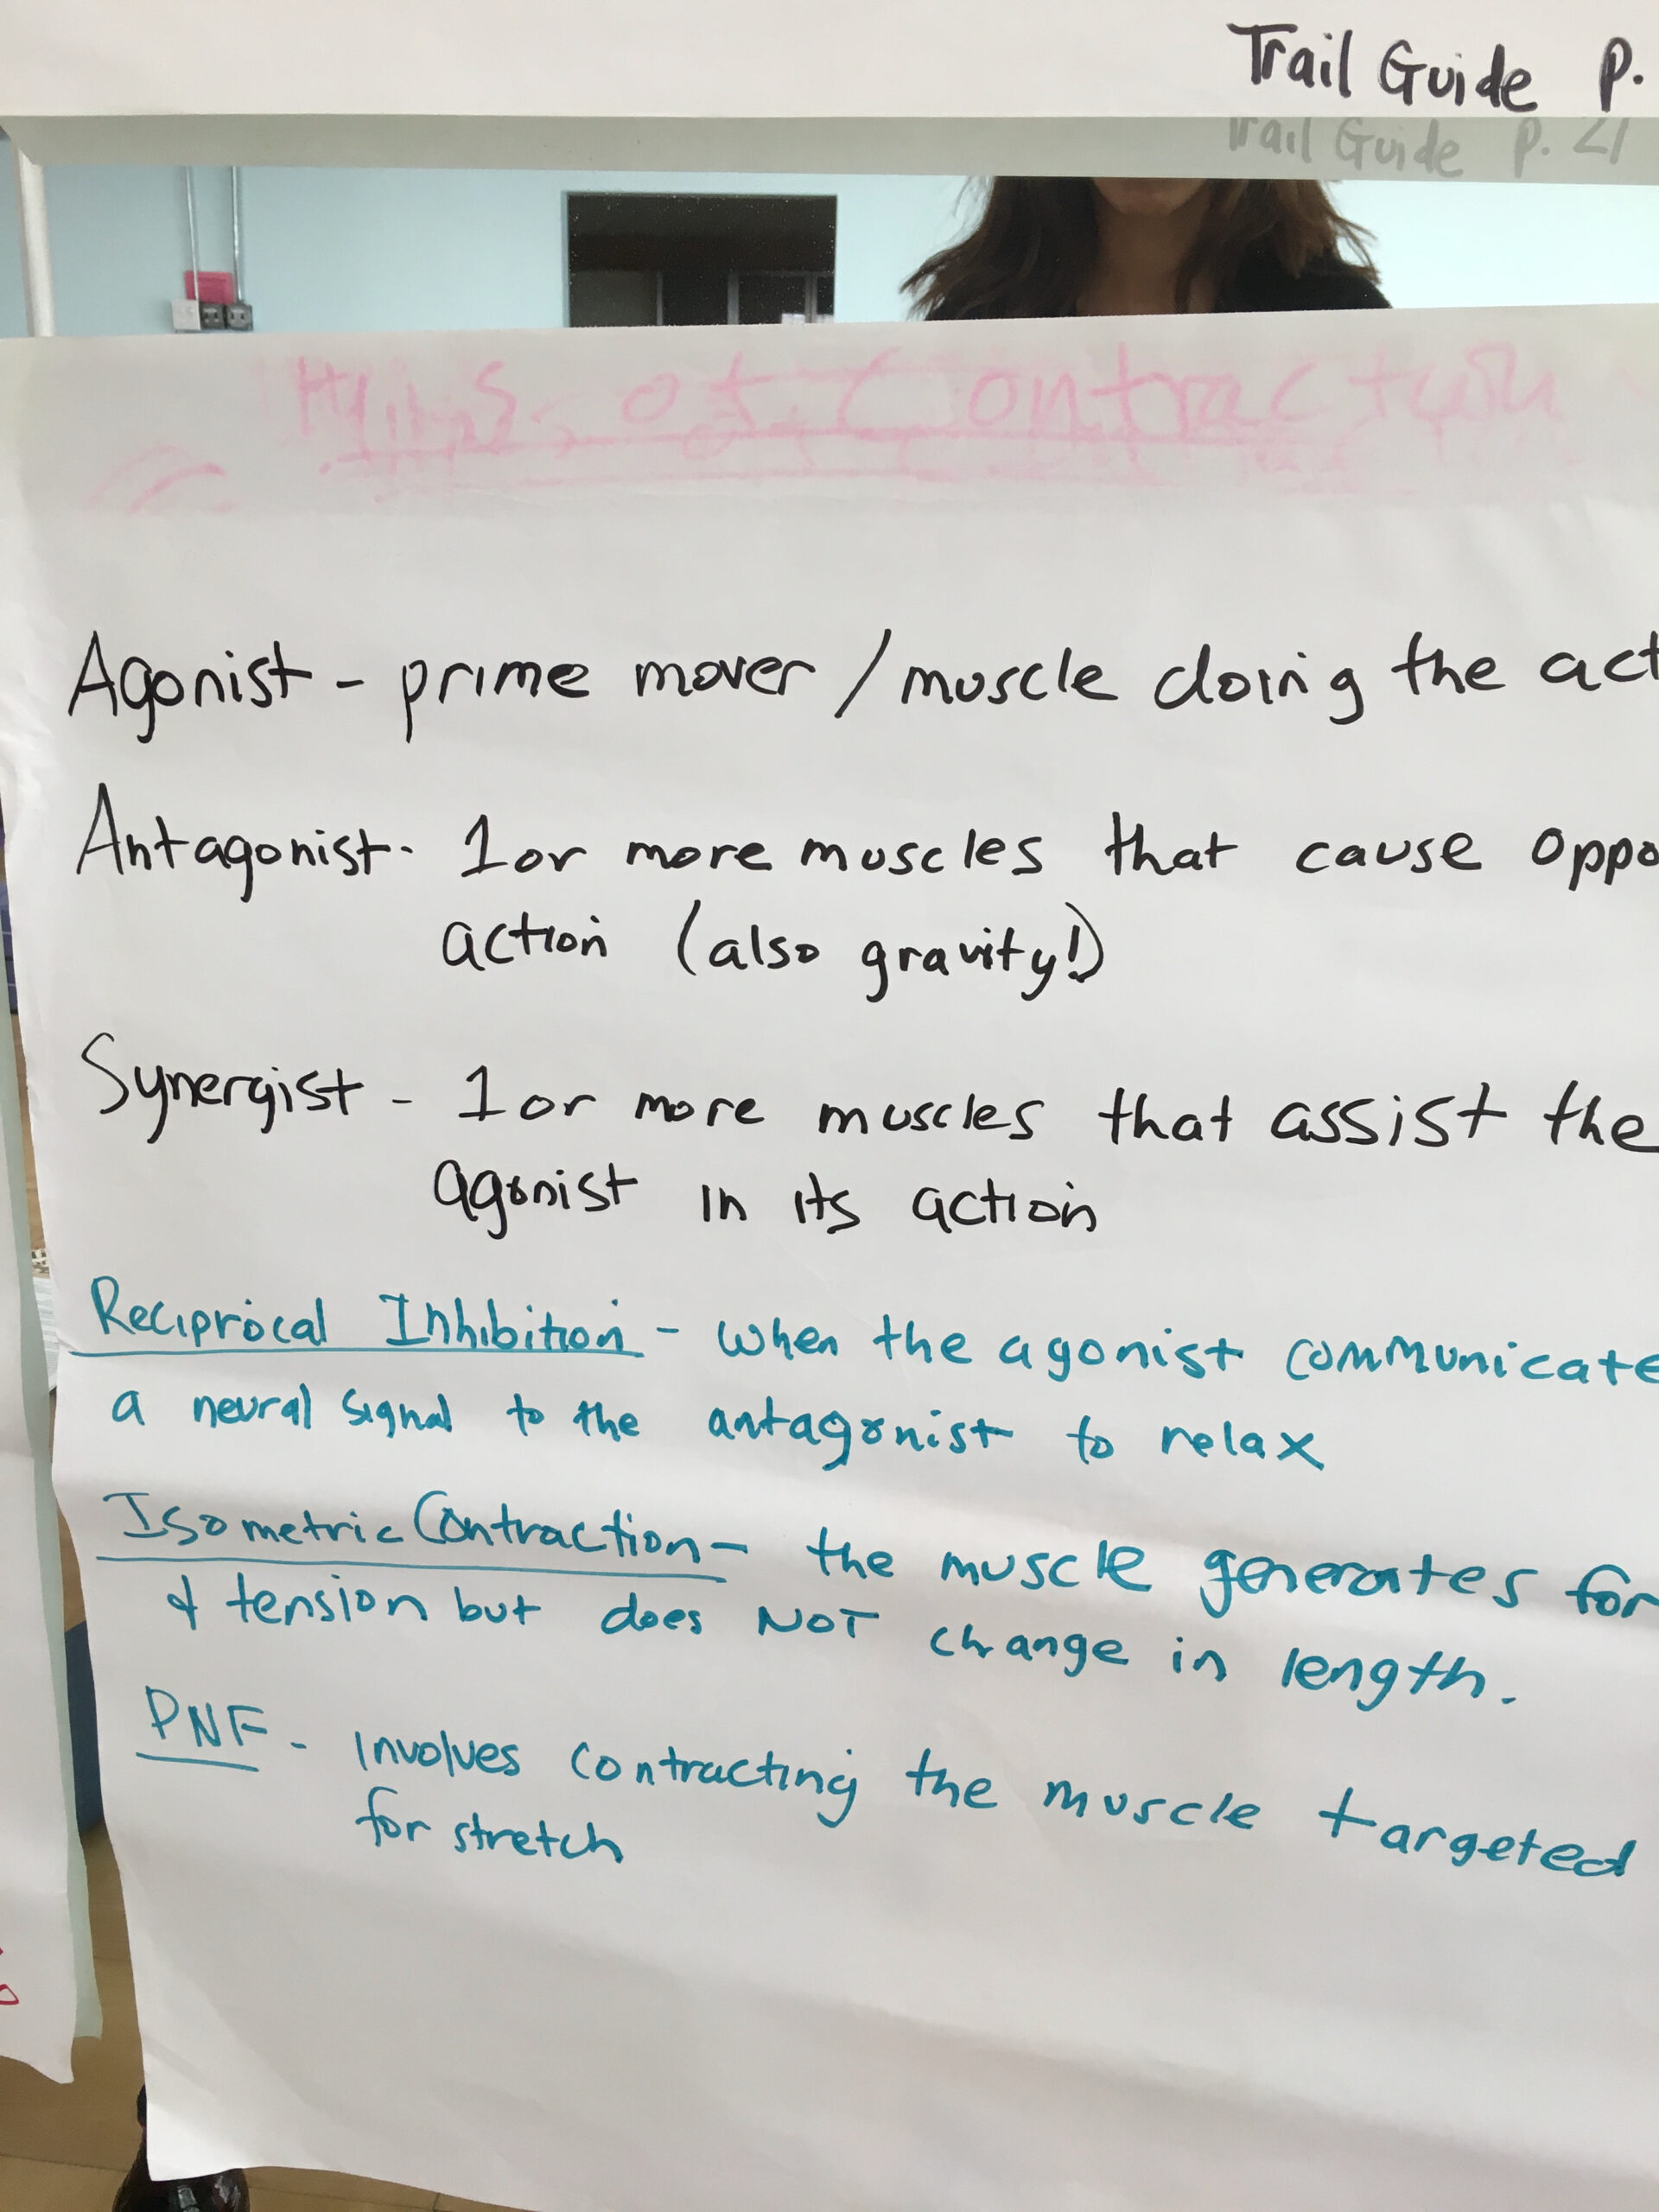 Trail Guide p.
Trail Guide p. 21
of Contraction
Agonist - prime mover / muscle doing the act
Antagonist - 1 or more muscles that cause oppo
action (also gravity!)
Synergist - 1 or more muscles that assist the
agonist in its action
Reciprocal Inhibition - when the agonist communicate
a neural signal to the antagonist to relax
Isometric Contraction - the muscle generates for
& tension but does NOT change in length.
PNF - Involves contracting the muscle targeted
for stretch